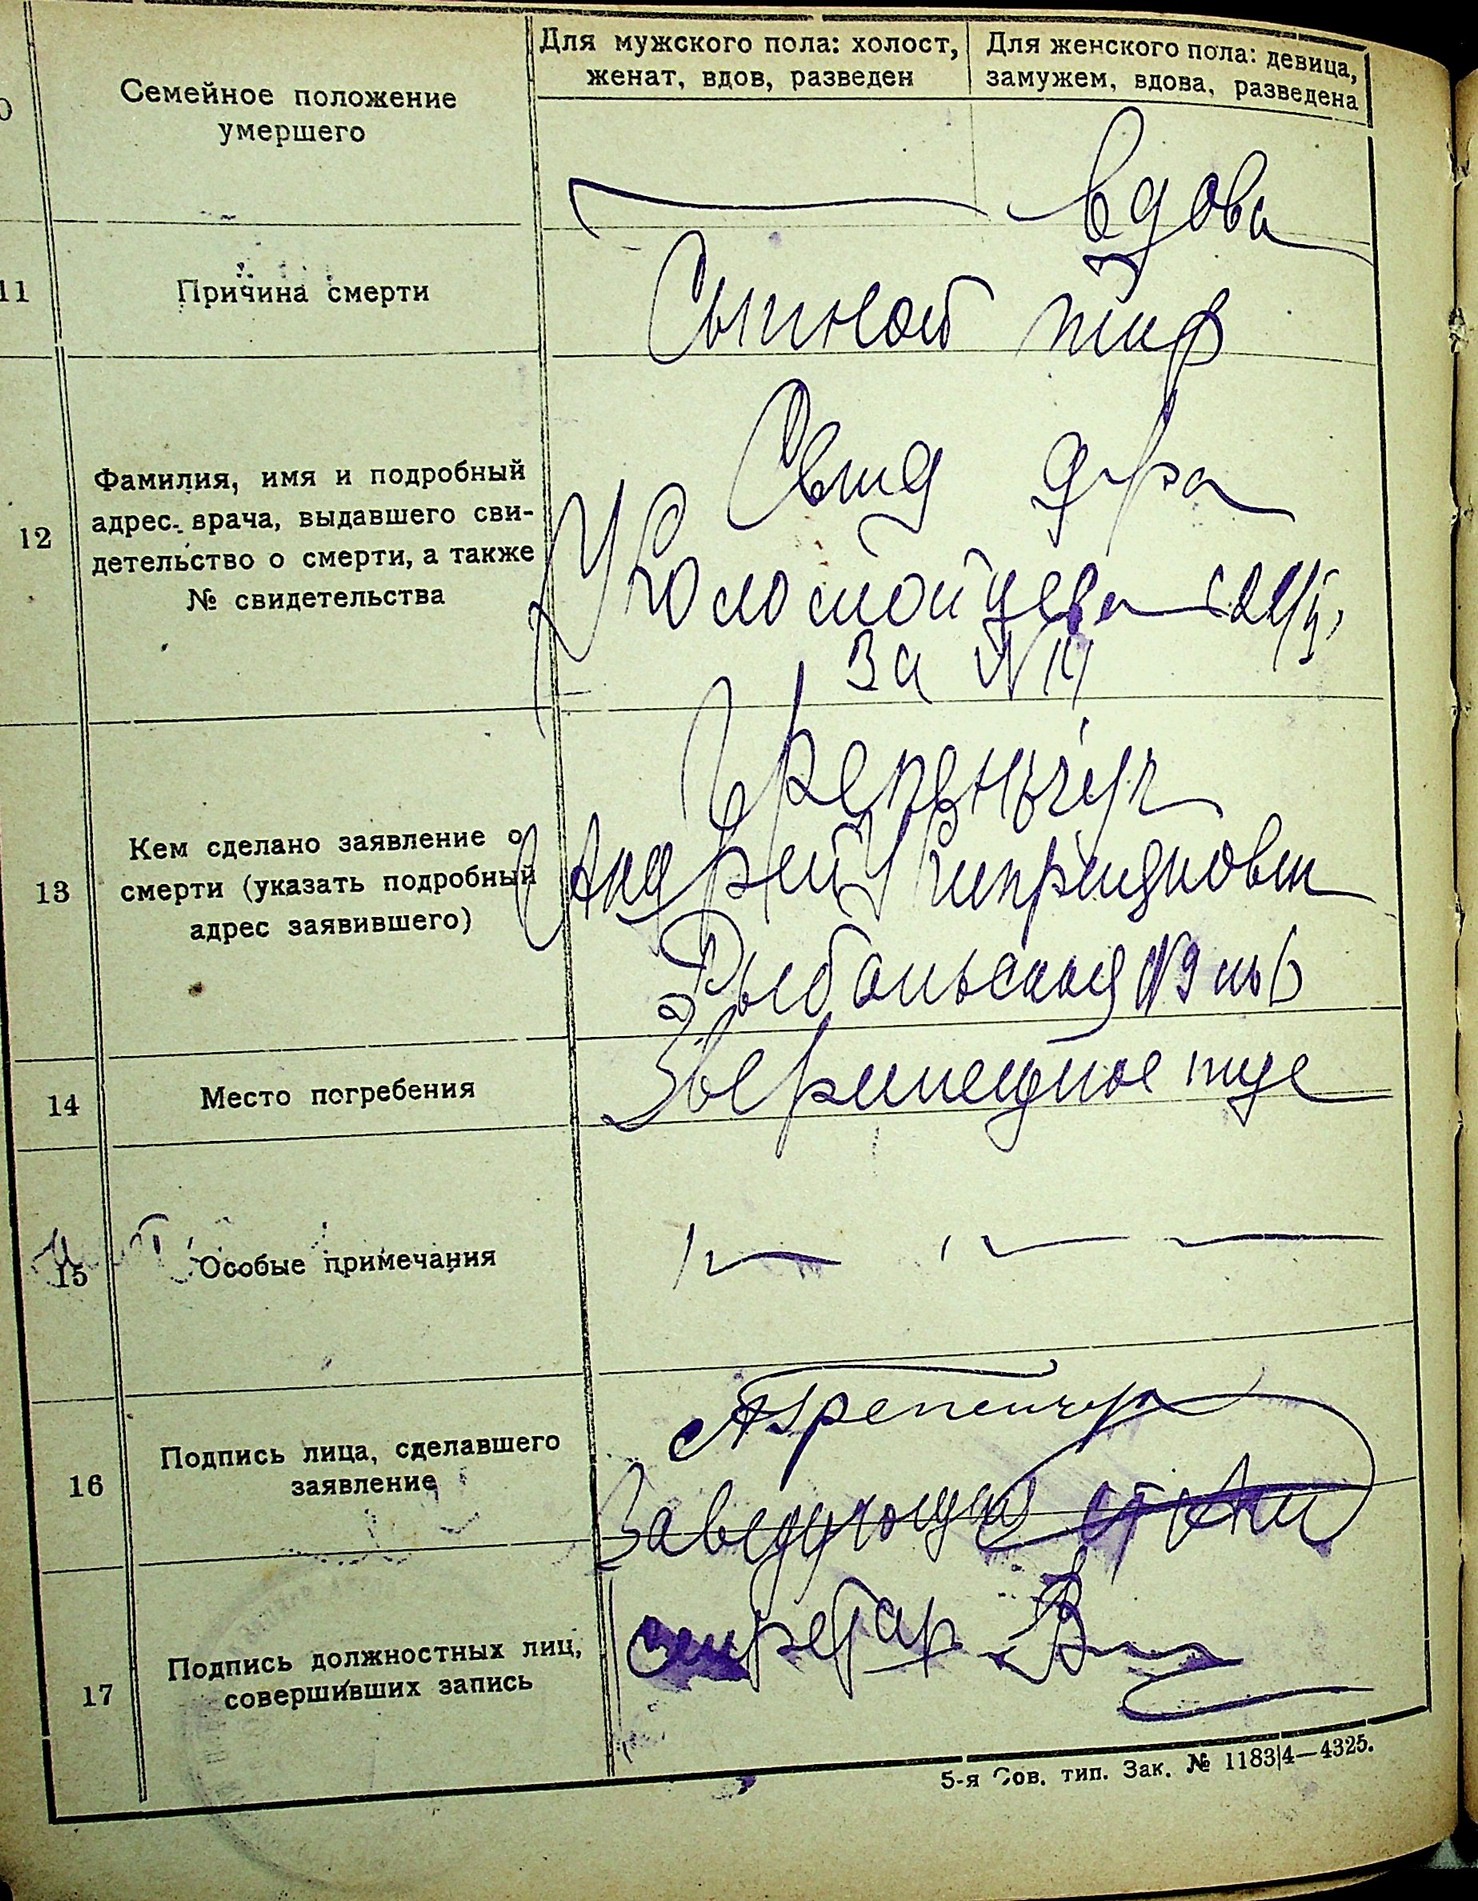 Для мужского пола: холост,
женат, вдов, разведен
Для женского пола: девица,
замужем, вдова, разведена
Семейное положение
умершего
вдова
11
Причина смерти
Сыпной тиф
12
Фамилия, имя и подробный
адрес врача, выдавшего сви-
детельство о смерти, а также
№ свидетельства
Свид д-ра
Коломойцева
За №
13
Кем сделано заявление о
смерти (указать подробный
адрес заявившего)
Андрей
Рыбальская №9
14
Место погребения
Зверинецкое
15
Особые примечания
16
Подпись лица, сделавшего
заявление
Заведующий
17
Подпись должностных лиц,
совершивших запись
секретар
5-я Сов. тип. Зак. № 1183|4—4325.